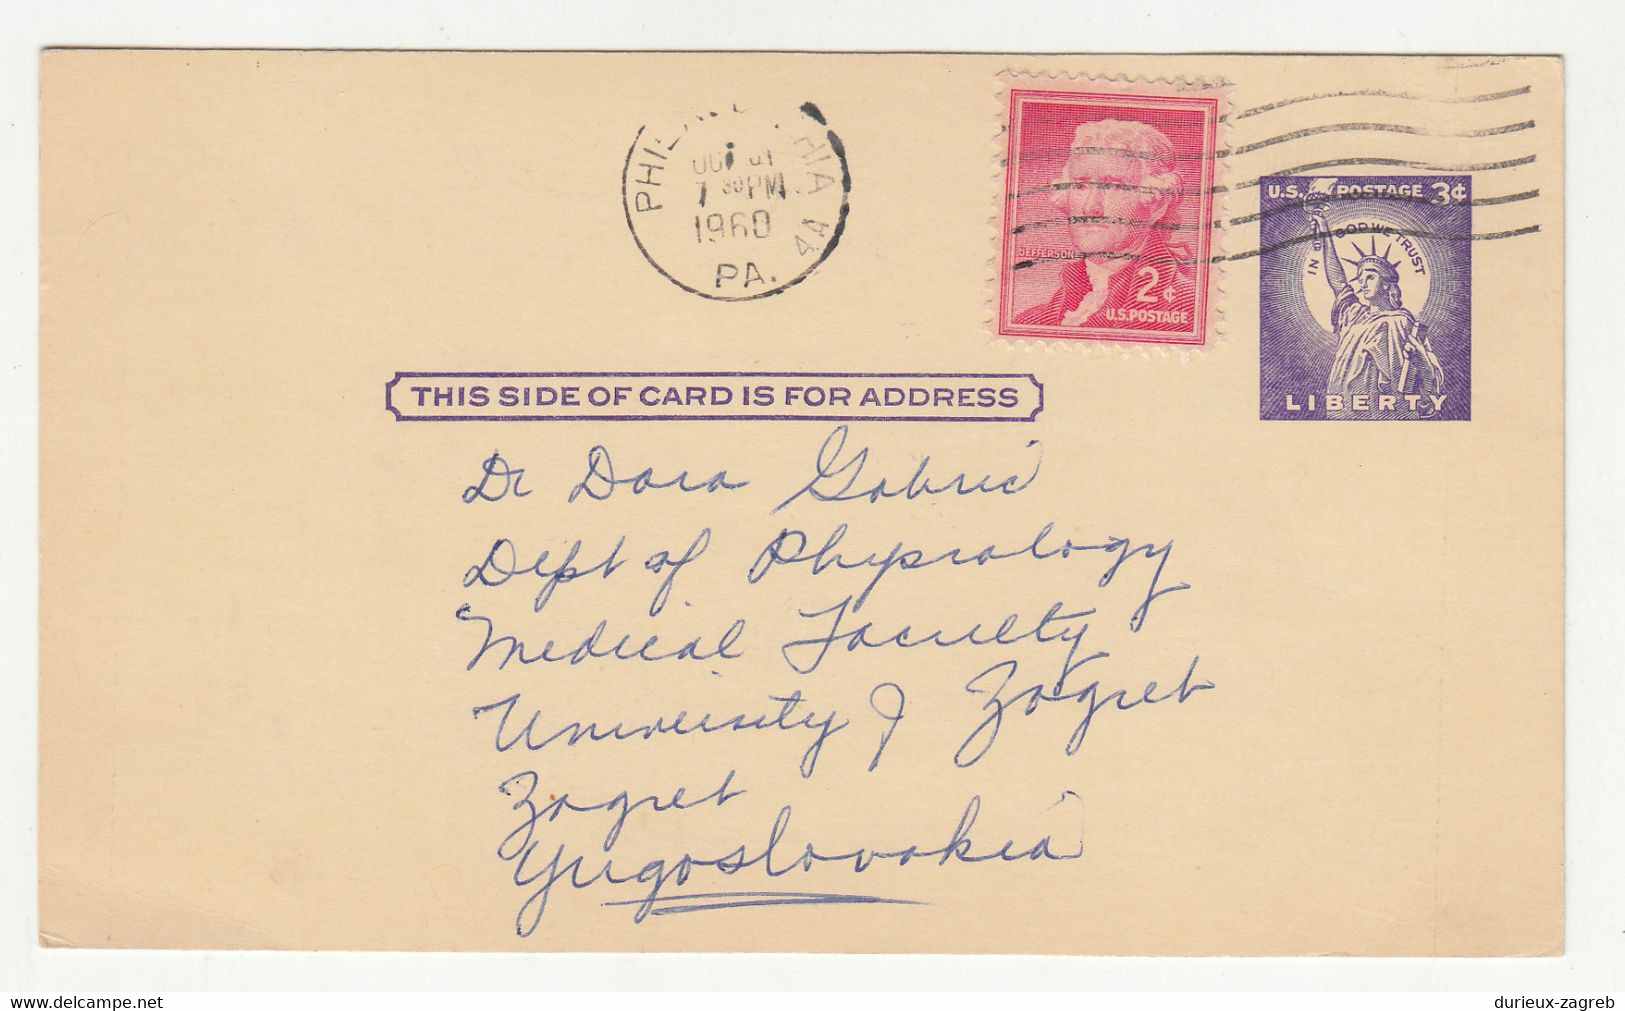 PHIL
HIA
4A
7 30 PM
1960
PA.
JEFFERSON
2¢
U.S. POSTAGE
U.S. POSTAGE 3¢
IN GOD WE TRUST
LIBERTY
THIS SIDE OF CARD IS FOR ADDRESS
Dr Dora Gabric
Dept of Physiology
Medical Faculty
University of Zagreb
Zagreb
Yugoslovakia
durieux-zagreb
www.delcampe.net